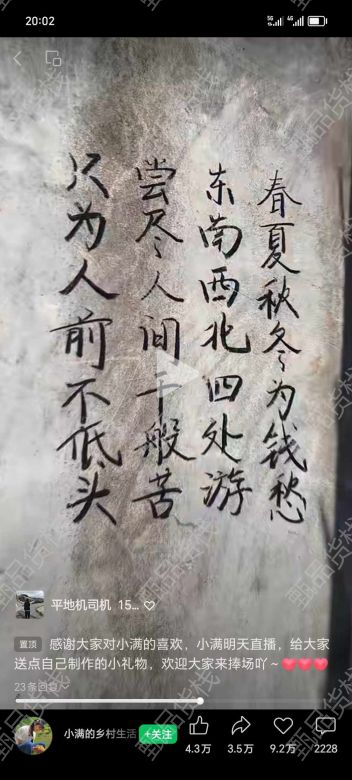 20:02
春夏秋冬为钱愁
东南西北四处游
尝尽人间千般苦
只为人前不低头
平地机司机 15...
置顶 感谢大家对小满的喜欢，小满明天直播，给大家
送点自己制作的小礼物，欢迎大家来捧场吖~❤❤❤
23条回复
小满的乡村生活
+关注
4.3万
3.5万
9.2万
2228
甄品货栈